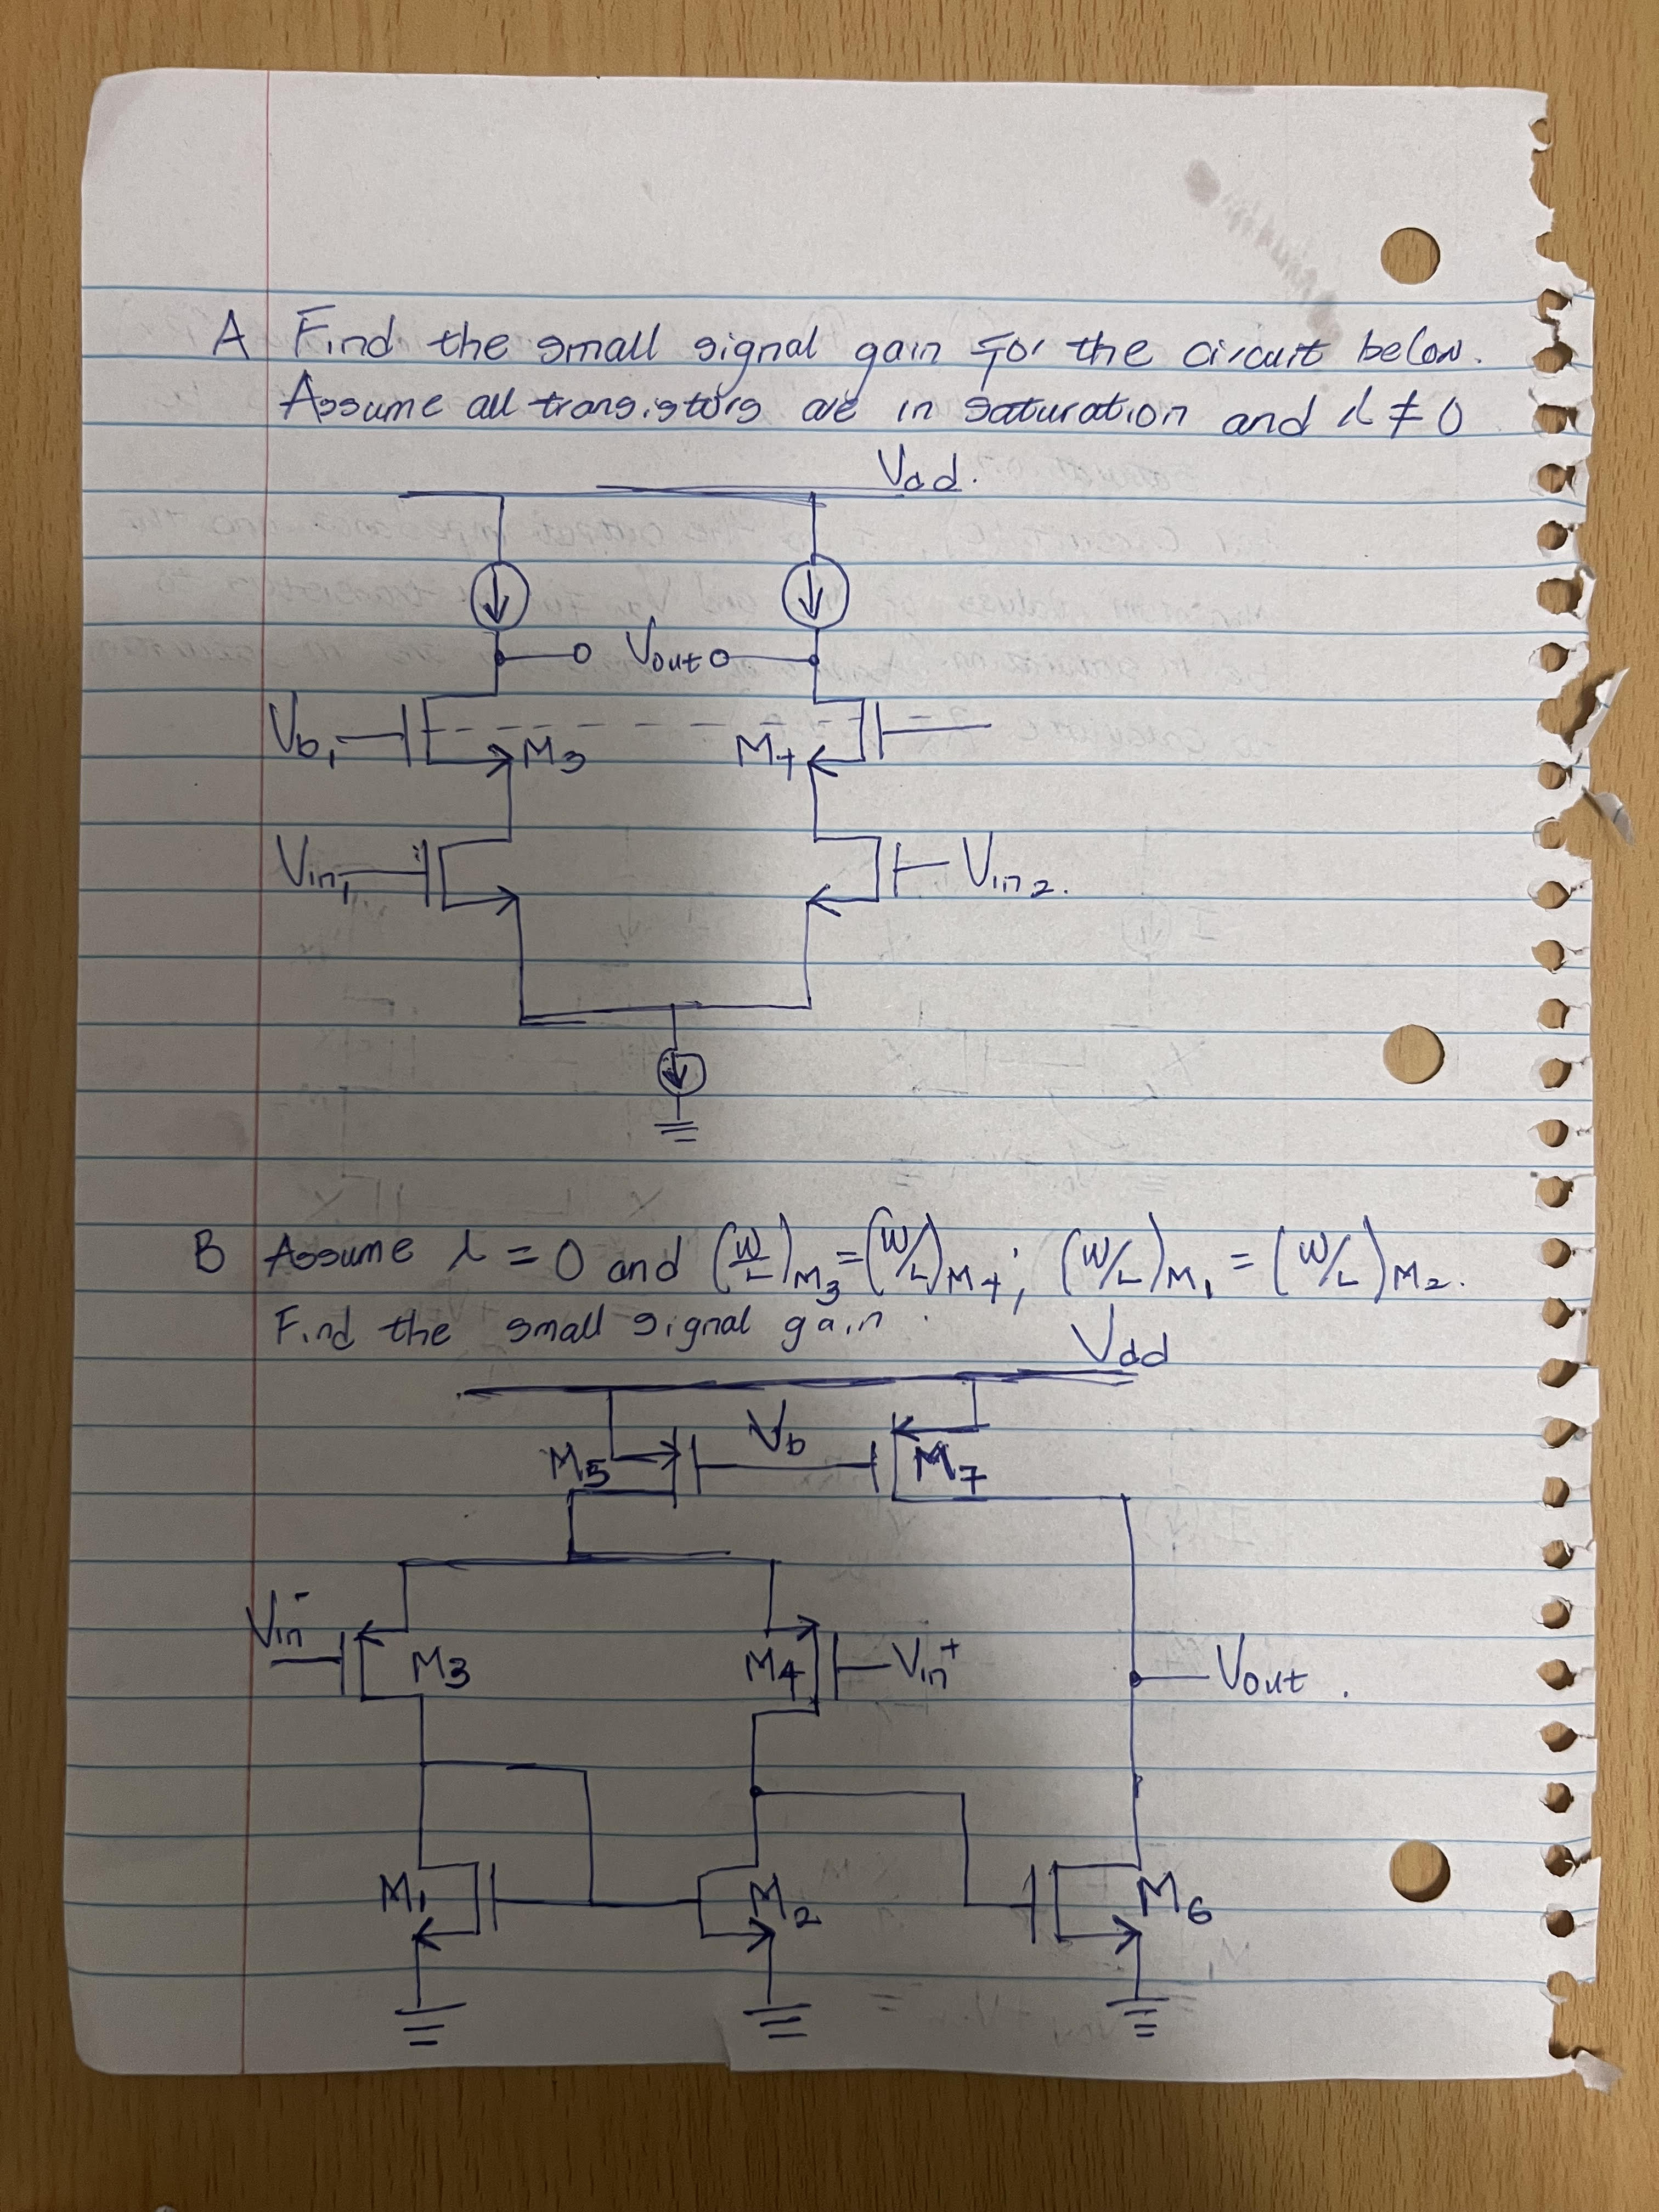 A Find the small signal gain for the circuit below.
Assume all transistors are in saturation and λ ≠ 0
Vdd.
Vout
Vb1
M3
M4
Vin1
Vin2.
B Assume λ = 0 and (W/L)M3 = (W/L)M4; (W/L)M1 = (W/L)M2.
Find the small signal gain.
Vdd
Vb
M5
M7
Vin-
M3
M4
Vin+
Vout.
M1
M2
M6